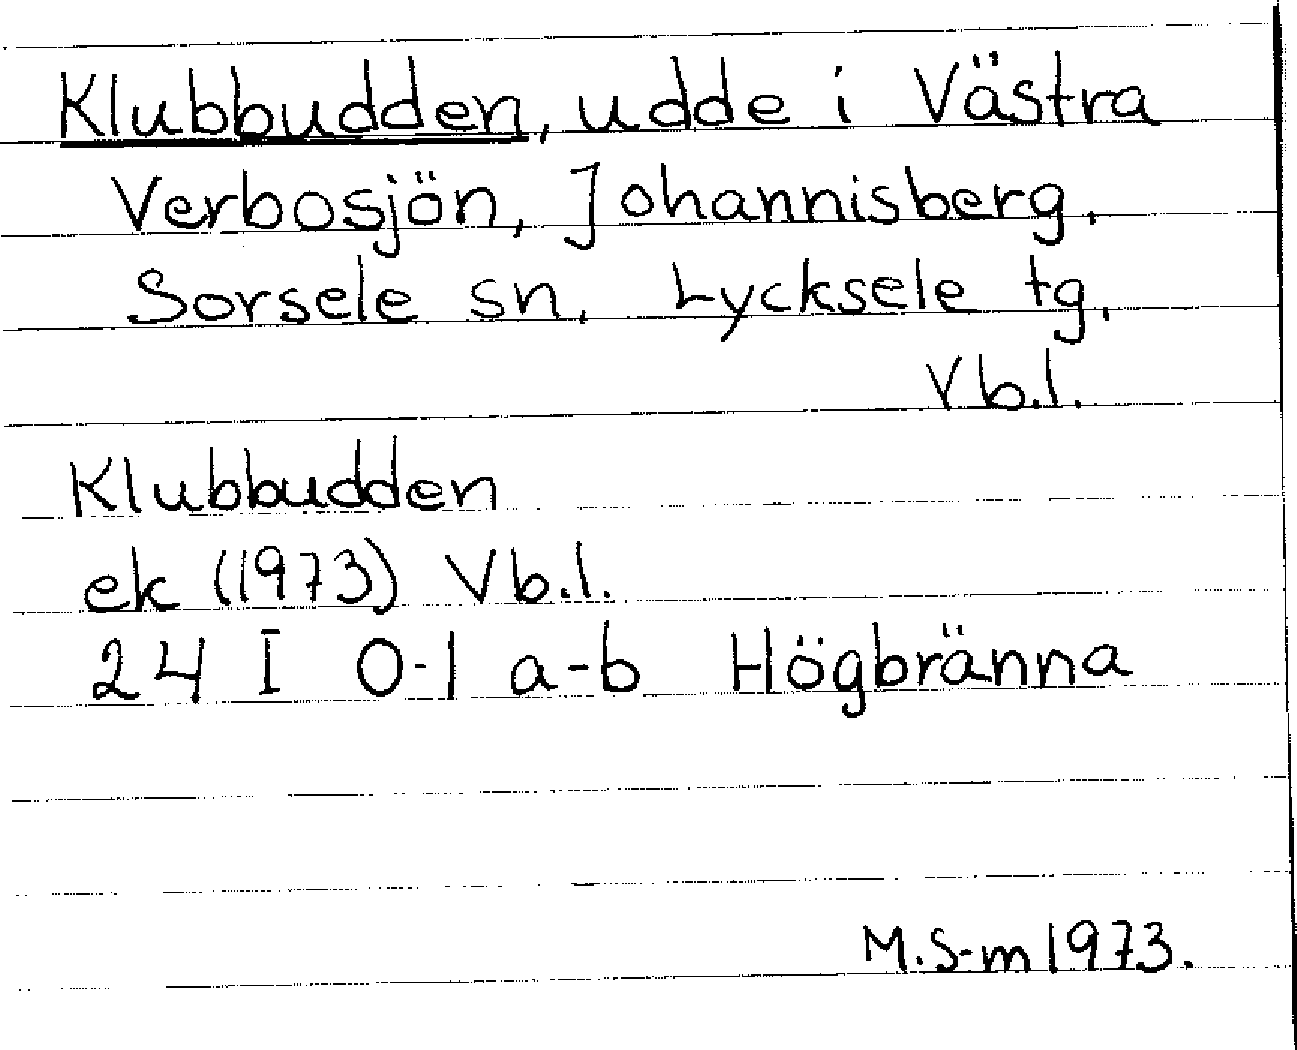 Klubbudden, udde i Västra
Verbosjön, Johannisberg,
Sorsele sn, Lycksele tg,
Vb.l.
Klubbudden
ek (1973) Vb.l.
24 I 0-1 a-b Högbränna
M.S-m 1973.